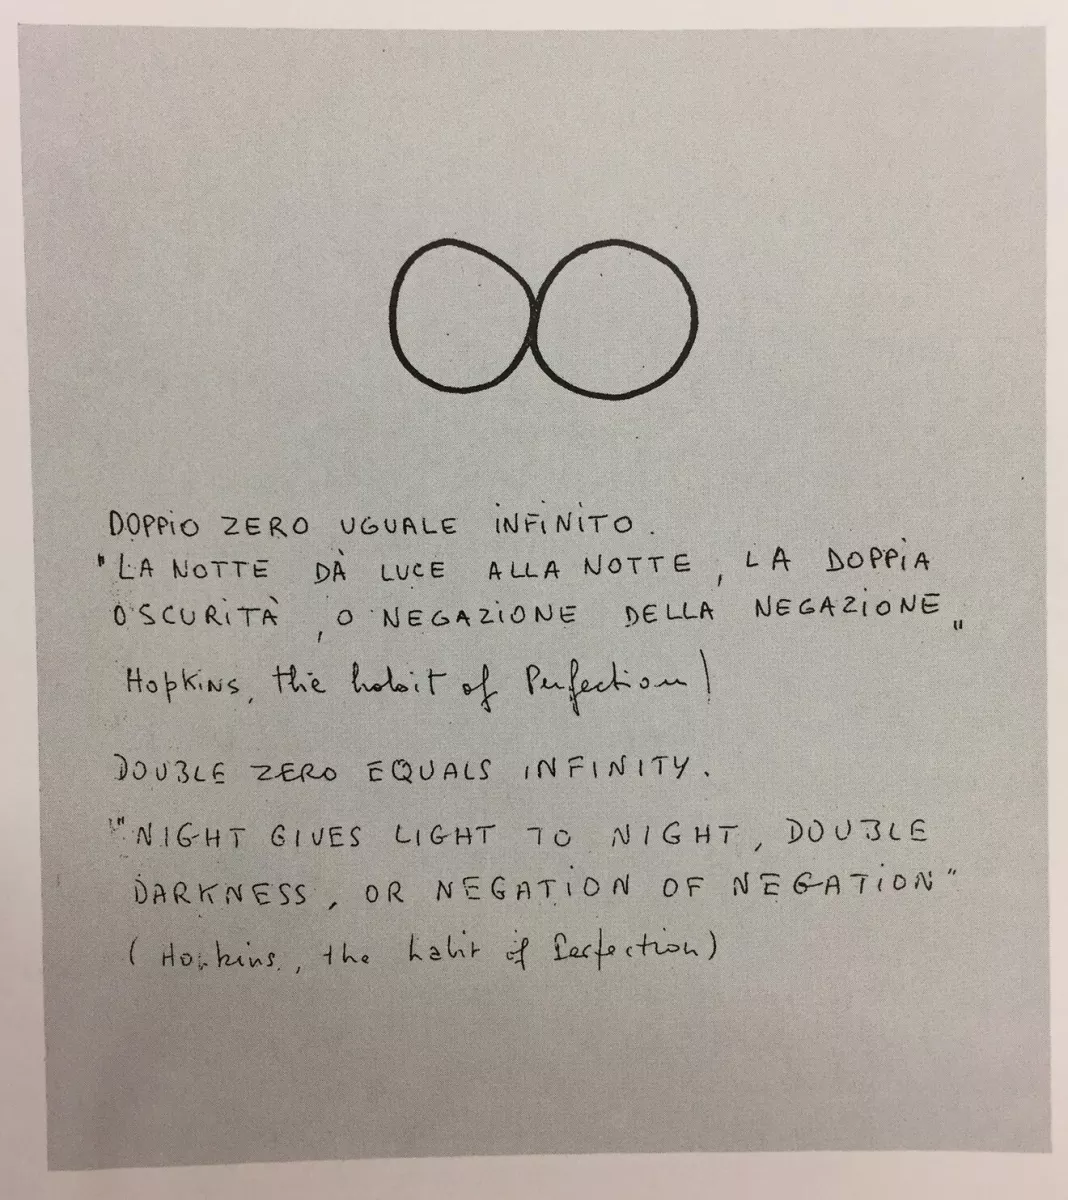 DOPPIO ZERO UGUALE INFINITO.
"LA NOTTE DÀ LUCE ALLA NOTTE, LA DOPPIA
OSCURITÀ, O NEGAZIONE DELLA NEGAZIONE"
Hopkins, the habit of Perfection)
DOUBLE ZERO EQUALS INFINITY.
"NIGHT GIVES LIGHT TO NIGHT, DOUBLE
DARKNESS, OR NEGATION OF NEGATION"
(Hopkins, the habit of Perfection)